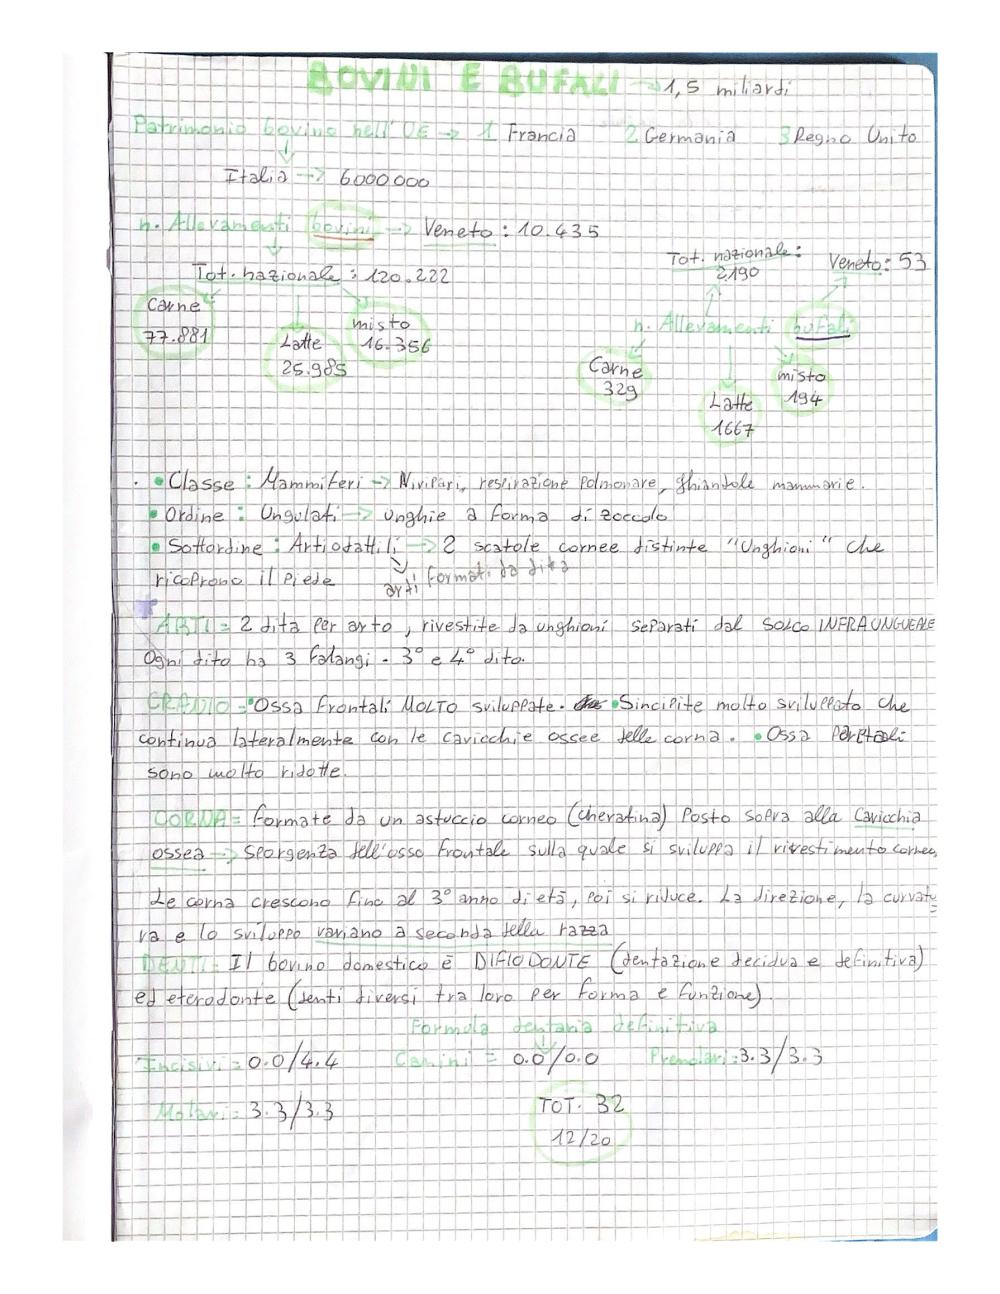 BOVINI E BUFALI → 1,5 miliardi
Patrimonio bovino nell'UE → 1 Francia 2 Germania 3 Regno Unito
Italia → 6000000
n. Allevamenti bovini → Veneto : 10.435
Tot. nazionale : 120.222
Carne
77.881
Latte
25.985
misto
16.356
Tot. nazionale :
2190
Veneto : 53
n. Allevamenti bufali
Carne
329
Latte
1667
misto
194
• Classe : Mammiferi → Vivipari, respirazione Polmonare, ghiandole mammarie.
• Ordine : Ungulati → unghie a forma di zoccolo
• Sottordine : Artiodattili → 2 scatole cornee distinte "Unghioni" che
ricoprono il piede
arti formati da dita
ARTI = 2 dita per arto, rivestite da unghioni separati dal SOLCO INFRAUNGUEALE
Ogni dito ha 3 falangi - 3° e 4° dito.
CRANIO = •Ossa frontali MOLTO sviluppate. •Sincipite molto sviluppato che
continua lateralmente con le cavicchie ossee delle corna. •Ossa Parietali
sono molto ridotte.
CORNA = formate da un astuccio corneo (cheratina) Posto sopra alla Cavicchia
ossea → Sporgenza dell'osso frontale sulla quale si sviluppa il rivestimento corneo.
Le corna crescono fino al 3° anno di età, poi si riduce. La direzione, la curvatu=
ra e lo sviluppo variano a seconda della razza
DENTI = Il bovino domestico è DIFIODONTE (dentazione decidua e definitiva)
ed eterodonte (denti diversi tra loro per forma e funzione).
Formula dentaria definitiva
Incisivi = 0.0/4.4 Canini = 0.0/0.0 Premolari = 3.3/3.3
Molari = 3.3/3.3
TOT. 32
12/20